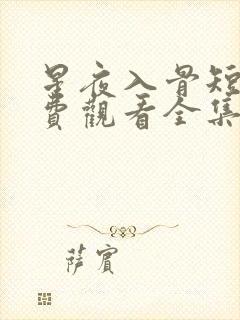 星夜入骨短
費觀看全集
薩賓